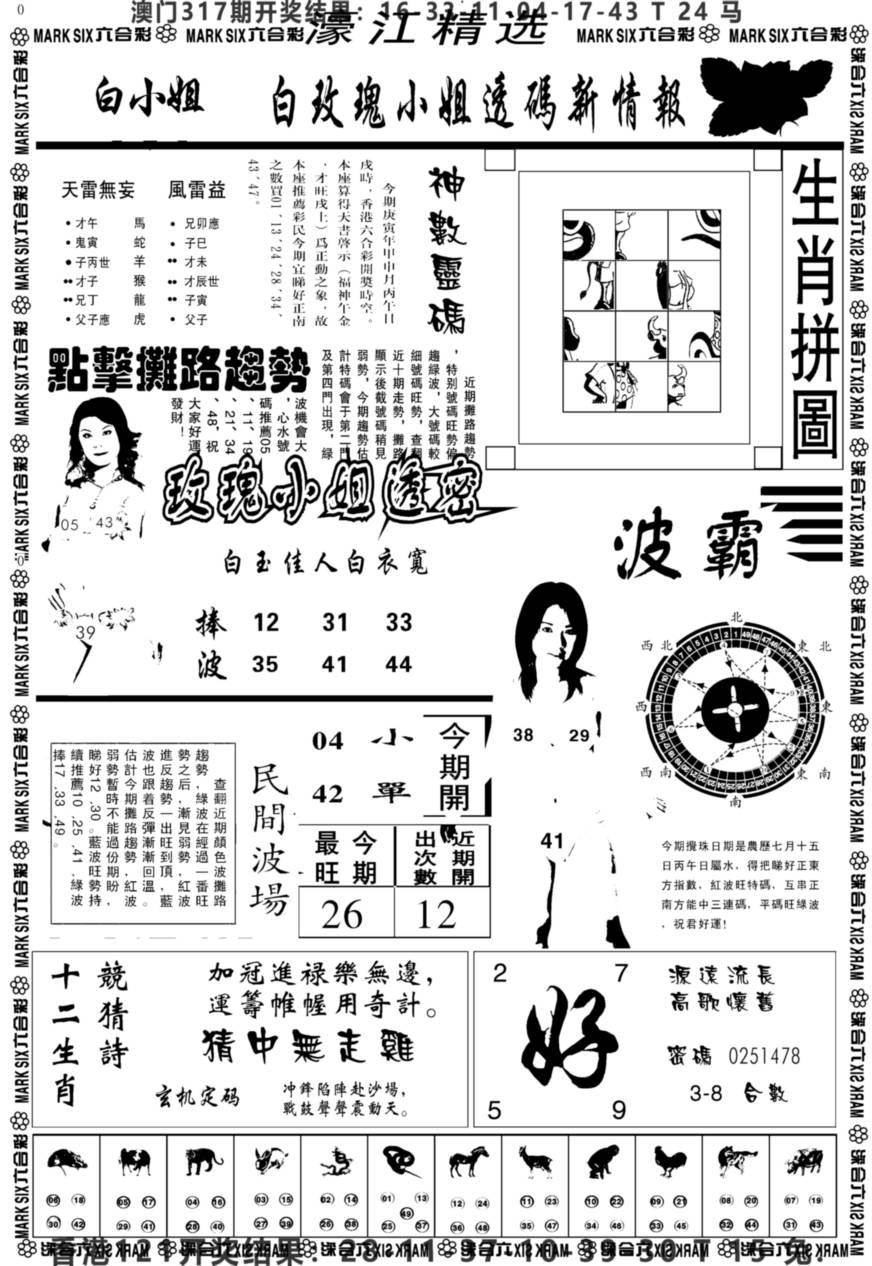 0
澳门317期开奖结果：16-33-11-04-17-43 T 24 马
MARK SIX六合彩 MARK SIX六合彩 濠江精选 MARK SIX六合彩 MARK SIX六合彩
白小姐 白玫瑰小姐透碼新情報
天雷無妄 風雷益
•才午 馬 •兄卯應
•鬼寅 蛇 •子巳
●子丙世 羊 ••才未
••才子 猴 ••才辰世
••兄丁 龍 ••子寅
•父子應 虎 •父子
神數靈碼
今期庚寅年甲申月丙午日
戌時，香港六合彩開獎時空。
本座算得天書啓示（福神午金
，才旺戌上）爲正動之象，故
本座推薦彩民今期宜睇好正南
之數買01、13、24、28、34、
43、47。
生肖拼圖
點擊攤路趨勢
近期攤路趨勢
，特別號碼旺勢偏
趨綠波，大號碼較
細號碼旺勢，查翻
近十期走勢，攤路
顯示後截號碼稍見
弱勢，今期趨勢估
計特碼會于第二門
及第四門出現，綠
波機會大
，心水號
碼推薦05
、11、19
、21、34
、48，祝
大家好運
發財！
05 43
玫瑰小姐透密
白玉佳人白衣寬
39
捧 12 31 33
波 35 41 44
波霸
38 29
41
北
西北 東北
西 東
西南 東南
南
今期攪珠日期是農歷七月十五
日丙午日屬水，得把睇好正東
方指數，紅波旺特碼，互串正
南方能中三連碼，平碼旺綠波
，祝君好運！
查翻近期顏色波攤路
趨勢，綠波在經過一番旺
勢之后，漸見弱勢，紅波
進反趨勢一出到頂，藍
波也跟着反彈漸漸回溫。
估計今期攤路趨勢紅波
弱勢暫時不能過份期盼，
睇好12、30。藍波旺勢持
續推薦10、25、41，綠波
捧17、33、49。
民間波場
04 小
42 單
今期開
最旺 今期
出次數 近期開
26 12
十二生肖
競猜詩
加冠進禄樂無邊，
運籌帷幄用奇計。
猜中無走雞
玄机定码
冲鋒陷陣赴沙場，
戰鼓聲聲震動天。
2 7
好
5 9
源遠流長
高歌懷舊
密碼 0251478
3-8 合數
06 18 05 17 04 16 03 15 02 14 01 13 12 24 11 23 10 22 09 21 08 20 07 19
49
30 42 29 41 28 40 27 39 26 38 25 37 36 48 35 47 34 46 33 45 32 44 31 43
香港121开奖结果：28-11-37-10-39-30 T 15 兔